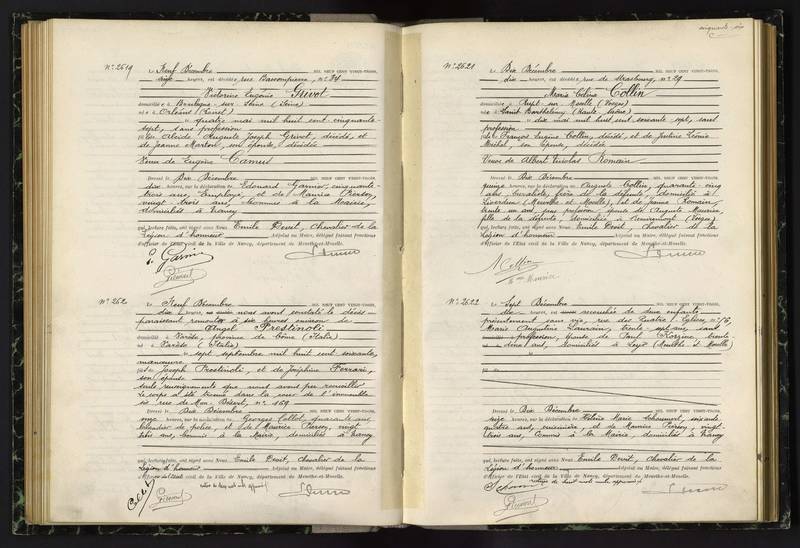 cinquante-six
N° 2619
Le Neuf Décembre MIL NEUF CENT VINGT-TROIS,
heures, est décédée rue Bassompierre, n° 34
Victorine Eugénie Grivot
domiciliée à Boulogne sur Seine (Seine)
née à Orléans (Loiret)
quatre mai mil huit cent cinquante-
sept, sans profession
Alcide Auguste Joseph Grivot, décédé, et
de Jeanne Marton, son épouse, décédée
Veuve de Eugène Camus
Dressé le Dix Décembre MIL NEUF CENT VINGT-TROIS,
dix heures, sur la déclaration de Edouard Garnier, cinquante-
trois ans, Employé, et de Maurice Pierson,
vingt trois ans, Commis à la Mairie,
domiciliés à Nancy
qui, lecture faite, ont signé avec Nous Emile Devit, Chevalier de la
Légion d'honneur Adjoint au Maire, délégué faisant fonctions
d'Officier de l'État civil de la Ville de Nancy, département de Meurthe-et-Moselle.
N° 262
Le Neuf Décembre MIL NEUF CENT VINGT-TROIS,
dix heures nous avons constaté le décès
paraissant remonter à dix heures environ de
Angel Prestinoli
domicilié à Varèse, province de Côme (Italie)
né à Varèse (Italie)
sept septembre mil huit cent soixante,
manœuvre
Joseph Prestinoli, et de Joséphine Ferrari,
son épouse
seuls renseignements que nous avons pu recueillir
Le corps a été trouvé dans la cour de l'immeuble
sis rue de Mon Désert, n° 159
Dressé le Dix Décembre MIL NEUF CENT VINGT-TROIS,
onze heures, sur la déclaration de Georges Collot, quarante ans,
de police, et de Maurice Pierson, vingt
trois ans, Commis à la Mairie, domiciliés à Nancy
qui, lecture faite, ont signé avec Nous Emile Devit, Chevalier de la
Légion d'honneur Adjoint au Maire, délégué faisant fonctions
d'Officier de l'État civil de la Ville de Nancy, département de Meurthe-et-Moselle.
N° 2621
Le Dix Décembre MIL NEUF CENT VINGT-TROIS,
dix heures, est décédée rue de Strasbourg, n° 29
Marie Céline Collin
domiciliée à Rupt sur Moselle (Vosges)
née à Saint Barthélemy (Haute Saône)
dix mai mil huit cent soixante sept, sans
profession
François Eugène Collin, décédé, et de Justine Léonie
Michel, son épouse, décédée
Veuve de Albert Nicolas Romain
Dressé le Dix Décembre MIL NEUF CENT VINGT-TROIS,
quinze heures, sur la déclaration de Auguste Collin, quarante cinq
ans, frère de la défunte, domicilié à
Liverdun (Meurthe et Moselle), et de Jeanne Romain,
trente un ans, sans profession, épouse de Auguste Maurice,
fille de la défunte, domiciliée à Remiremont (Vosges)
qui, lecture faite, ont signé avec Nous Emile Devit, Chevalier de la
Légion d'honneur Adjoint au Maire, délégué faisant fonctions
d'Officier de l'État civil de la Ville de Nancy, département de Meurthe-et-Moselle.
N° 2622
Le Sept Décembre MIL NEUF CENT VINGT-TROIS,
dix heures est accouchée de deux enfants
présentement sans vie, rue des Quatre Eglises, n° 76,
Marie Augustine Laurain, trente sept ans, sans
profession, épouse de Paul trente
ans, domiciliés à (Meurthe et Moselle)
Dressé le Dix Décembre MIL NEUF CENT VINGT-TROIS,
seize heures, sur la déclaration de Marie soixante
quatre ans, et de Maurice Pierson, vingt-
trois ans, Commis à la Mairie, domiciliés à Nancy
qui, lecture faite, ont signé avec Nous Emile Devit, Chevalier de la
Légion d'honneur Adjoint au Maire, délégué faisant fonctions
d'Officier de l'État civil de la Ville de Nancy, département de Meurthe-et-Moselle.